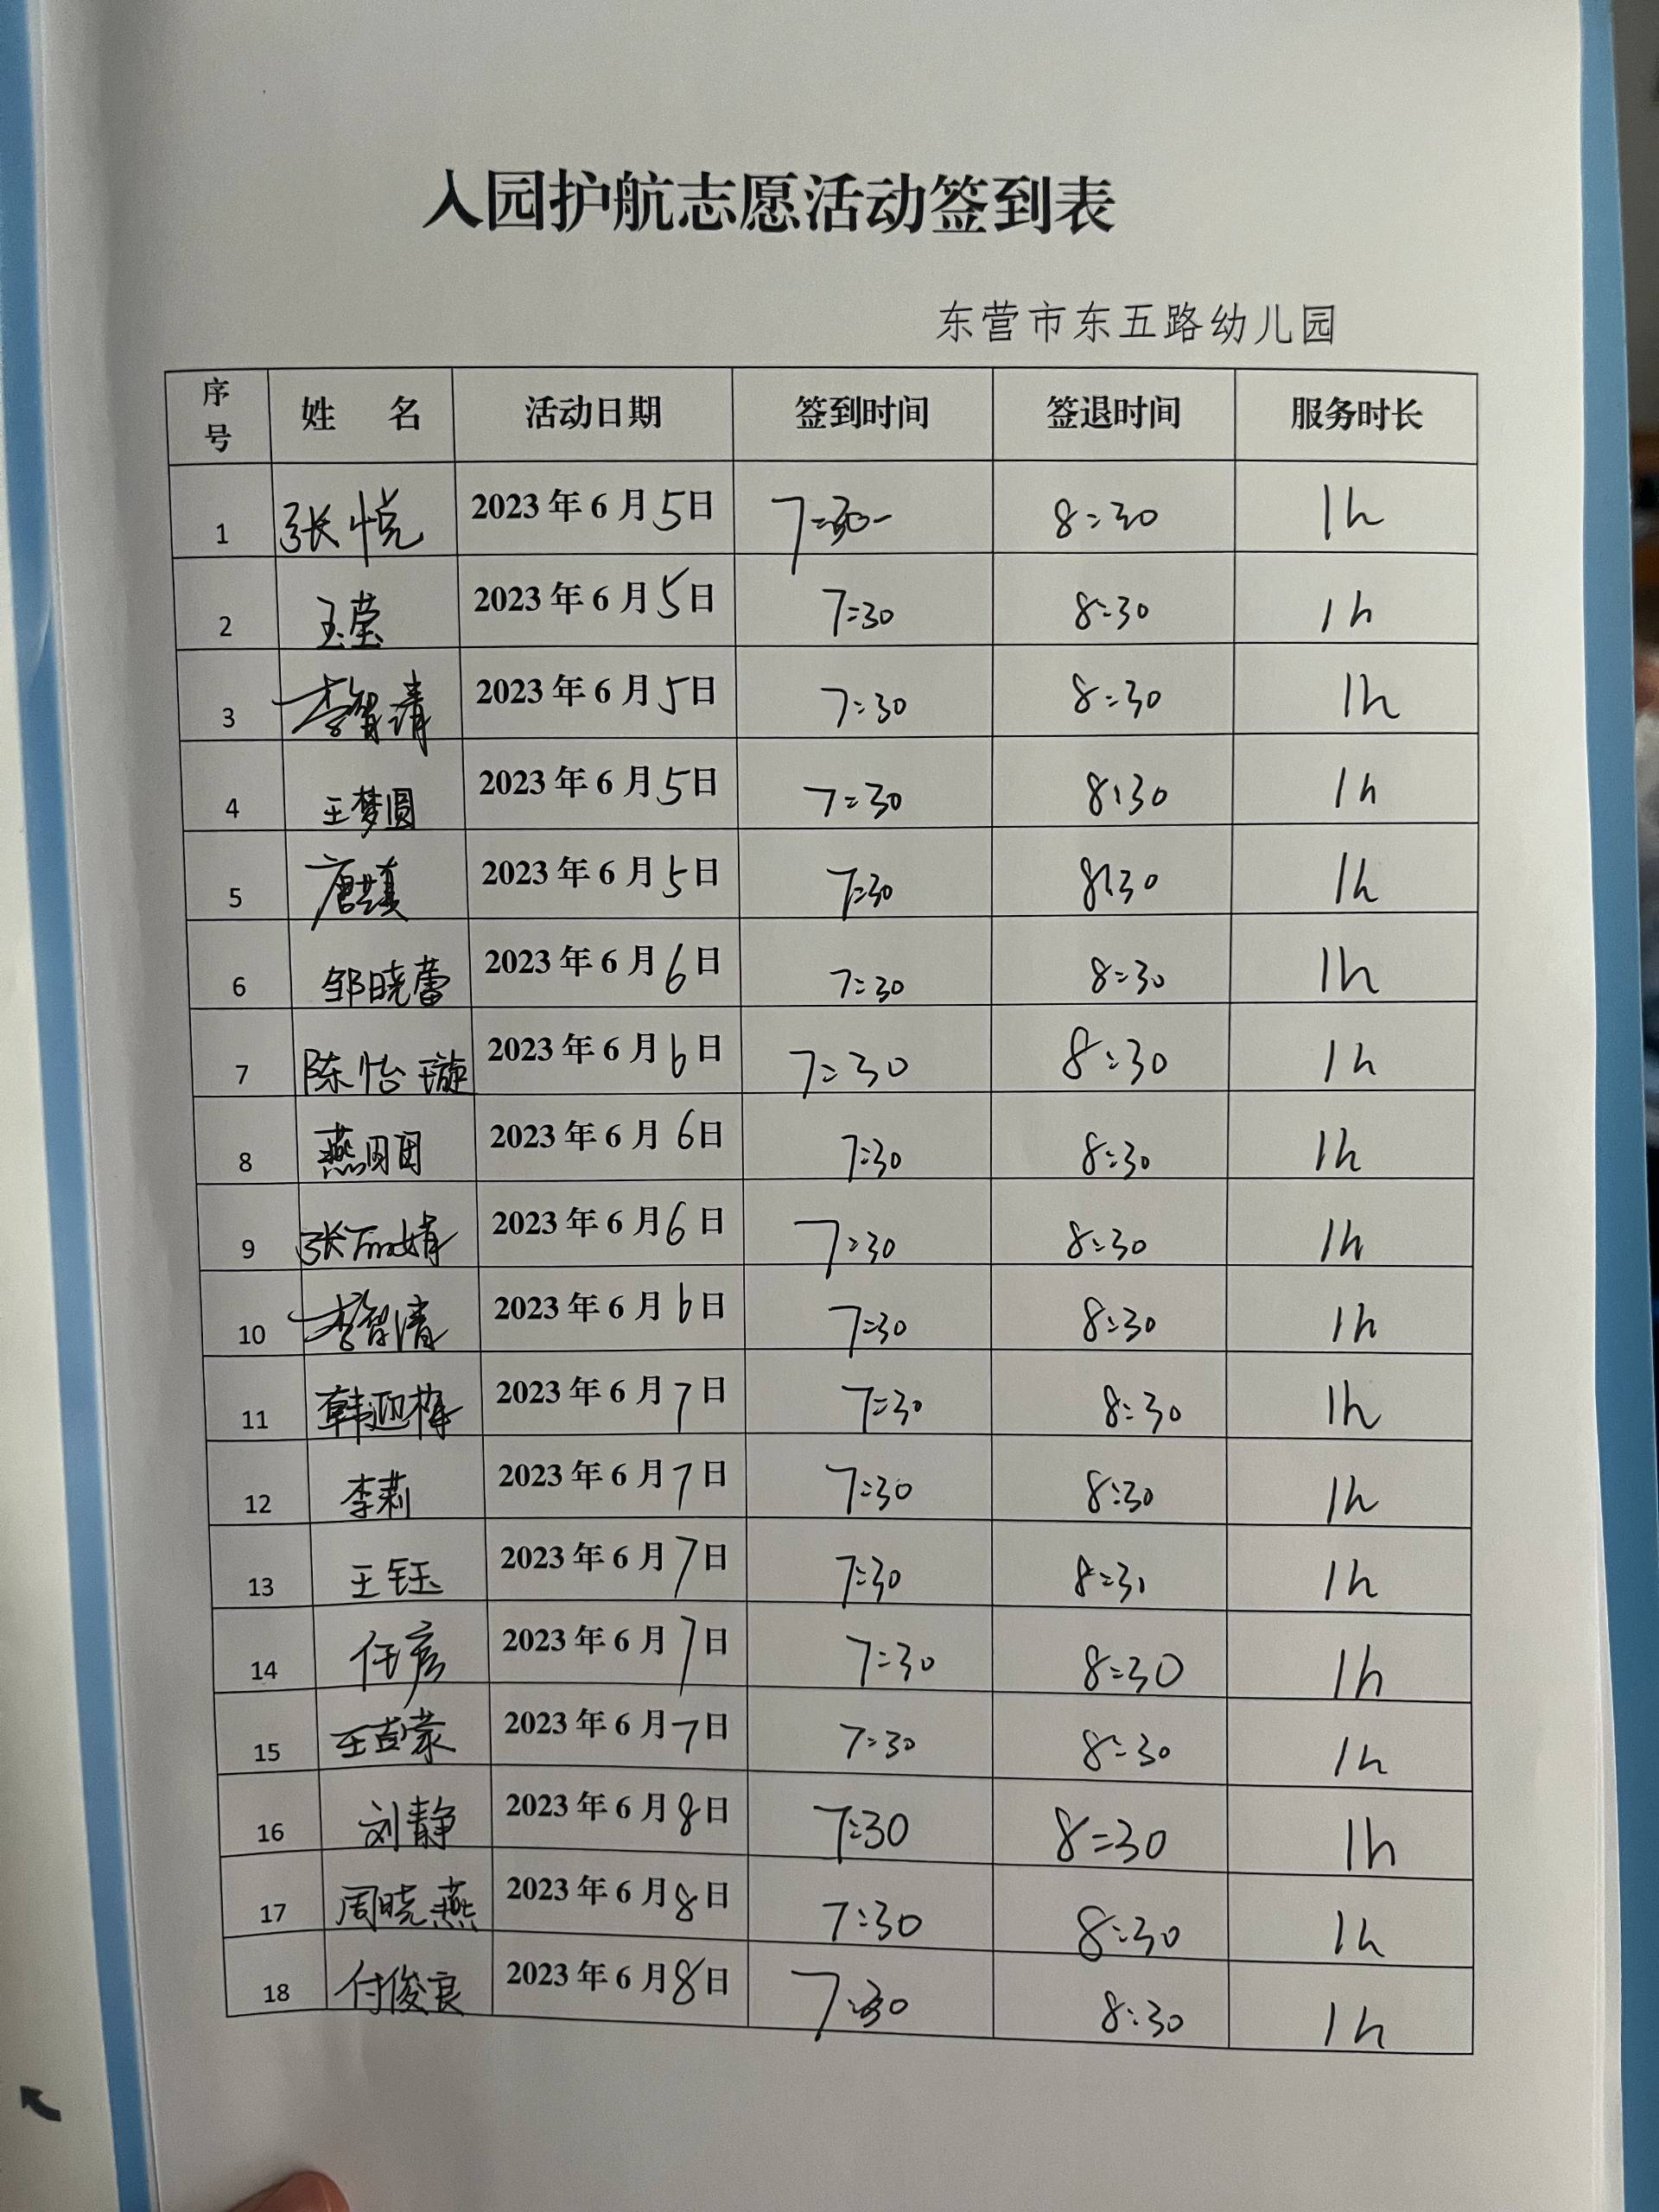 入园护航志愿活动签到表
东营市东五路幼儿园
序号 姓 名 活动日期 签到时间 签退时间 服务时长
1 张悦 2023年6月5日 7:30 8:30 1h
2 王莹 2023年6月5日 7:30 8:30 1h
3 李智清 2023年6月5日 7:30 8:30 1h
4 王梦圆 2023年6月5日 7:30 8:30 1h
5 唐 2023年6月5日 7:30 8:30 1h
6 邹晓蕾 2023年6月6日 7:30 8:30 1h
7 陈怡璇 2023年6月6日 7:30 8:30 1h
8 燕团团 2023年6月6日 7:30 8:30 1h
9 张丽婧 2023年6月6日 7:30 8:30 1h
10 李智清 2023年6月6日 7:30 8:30 1h
11 韩迎梅 2023年6月7日 7:30 8:30 1h
12 李莉 2023年6月7日 7:30 8:30 1h
13 王钰 2023年6月7日 7:30 8:30 1h
14 任彦 2023年6月7日 7:30 8:30 1h
15 王彭蒙 2023年6月7日 7:30 8:30 1h
16 刘静 2023年6月8日 7:30 8:30 1h
17 周晓燕 2023年6月8日 7:30 8:30 1h
18 付俊良 2023年6月8日 7:30 8:30 1h